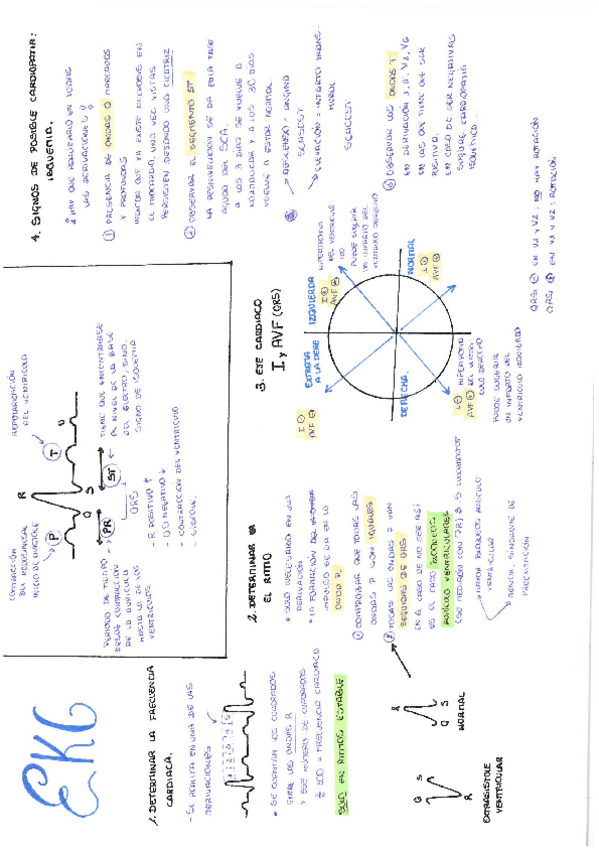 EKG
CONTRACCIÓN
INICIO DE DIÁSTOLE
P
R
Q
S
T
U
REPOLARIZACIÓN
DEL VENTRÍCULO
PR
ST
PERIODO DE TIEMPO
DESDE CONTRACCIÓN
DE LA AURÍCULA
HASTA LA DE LOS
VENTRÍCULOS.
QRS
- R POSITIVO ↑
- Q,S NEGATIVO ↓
- CONTRACCIÓN DEL VENTRÍCULO
- SÍSTOLE.
TIENE QUE ENCONTRARSE
AL NIVEL DE LA BASE
DEL ELECTRO, SINO
SIGNO DE ISQUEMIA
1. DETERMINAR LA FRECUENCIA
CARDIACA.
- SE REALIZA EN UNA DE LAS
DERIVACIONES
* SE CUENTAN LOS CUADRADOS
ENTRE LAS ONDAS R
Y ESE NÚMERO DE CUADRADOS
÷ 300 = FRECUENCIA CARDIACA
SOLO EN RITMOS ESTABLE
Q S
R
EXTRASÍSTOLE
VENTRICULAR
R
Q S
NORMAL
2. DETERMINAR
EL RITMO
* SOLO NECESARIO EN UNA
DERIVACIÓN
* LA FORMACIÓN DEL
IMPULSO SE DA EN LA
ONDA P.
① COMPROBAR QUE TODAS LAS
ONDAS P SON IGUALES
② TODAS LAS ONDAS P VAN
SEGUIDAS DE QRS
(EN EL CASO DE NO SER ASÍ
ES EL CASO BLOQUEOS
AURÍCULO VENTRICULARES
(SE MEDIRÁN CON PR) 3-5 CUADRADITOS
→ MAYOR BLOQUEOS AURÍCULO
VENTRICULAR
→ MENOR, SÍNDROME DE
PREEXCITACIÓN
3. EJE CARDIACO
I y AVF (QRS)
EXTREMA
A LA DERE
I ⊖
AVF ⊖
IZQUIERDA
I ⊕
AVF ⊖
HIPERTROFIA
DEL VENTRÍCULO
IZQ
PUEDE SUGERIR
UN INFARTO DEL
VENTRÍCULO DERECHO
DERECHA.
I ⊖
AVF ⊕
HIPERTROFIA
DEL VENTRÍ
CULO DERECHO
PUEDE SUGERIR
UN INFARTO DEL
VENTRÍCULO IZQUIERDO
NORMAL
I ⊕
AVF ⊕
4. SIGNOS DE POSIBLE CARDIOPATÍA:
ISQUEMIA.
HAY QUE REALIZARLO EN TODAS
LAS DERIVACIONES
① PRESENCIA DE ONDAS Q MARCADAS
Y PROFUNDAS
INDICAN QUE YA EXISTE NECROSIS EN
EL MIOCARDIO, UNA VEZ VISTAS
PERSISTEN DEJANDO UNA CICATRIZ
② OBSERVAR EL SEGMENTO ST
LA DESNIVELACIÓN SE DA EN LA FASE
AGUDA DEL SCA.
A LOS 3 DÍAS SE VUELVE A
Y A LOS 30 DÍAS
VUELVE A ESTAR NORMAL.
→ DESCENSO = ANGINA
SCASEST
→ ELEVACIÓN = INFARTO TRANS-
MURAL
SCACEST
③ OBSERVAR LAS ONDAS T:
EN DERIVACIÓN
EN LAS QUE TIENE QUE SER
POSITIVA.
EN CASO DE SER NEGATIVAS
SUGIERE CARDIOPATÍA
ISQUÉMICA
QRS ⊖ EN V1 y V2 : NO HAY ROTACIÓN
QRS ⊕ EN V1 y V2 : ROTACIÓN